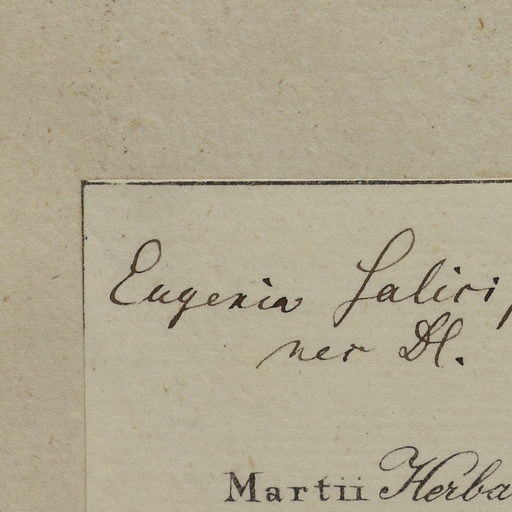 Eugenia Salici
ner Dl.
Martii Herba